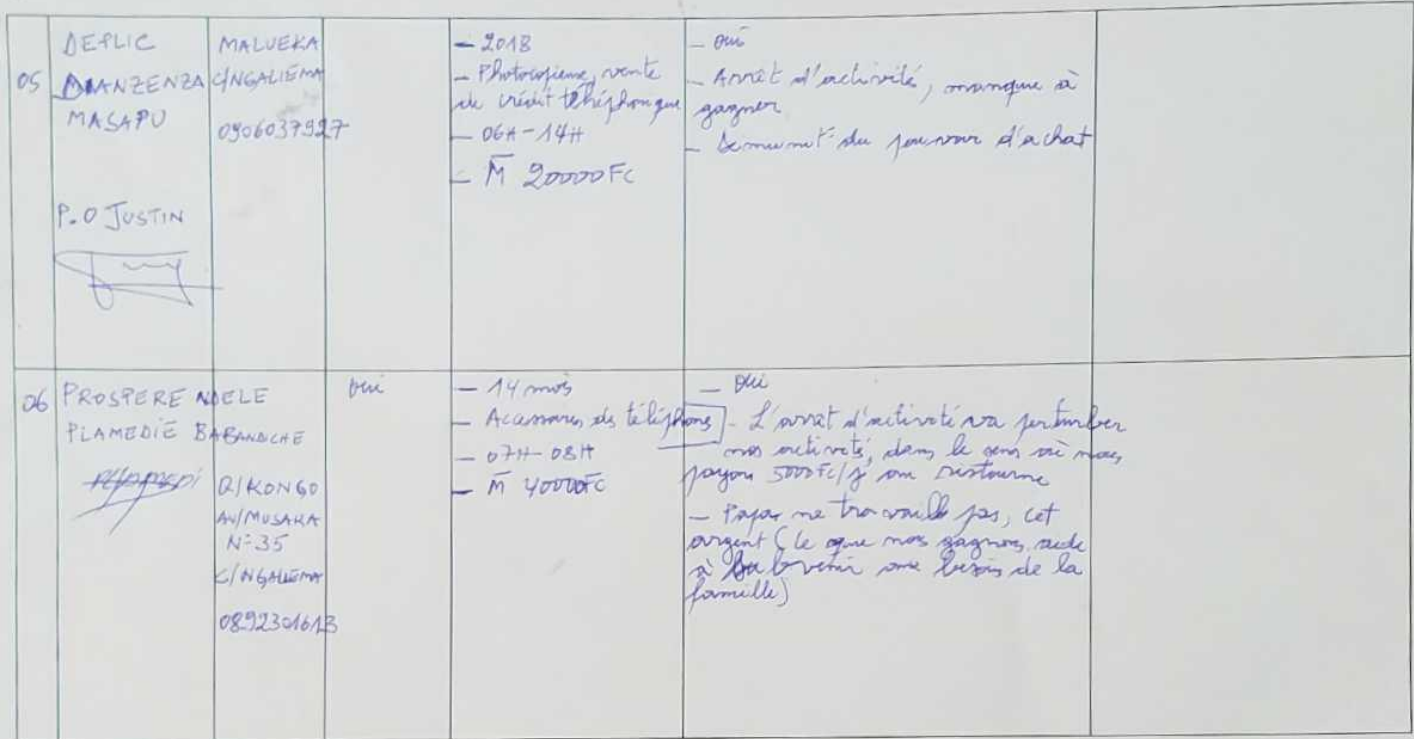 05
DEPLIC
DIANZENZA
MASAPU
P.O JUSTIN
MALUEKA
C/NGALIEMA
0906037927
- 2018
- Photocopieuse, vente
de crédit téléphonique
- 06H-14H
- M̄ 20000FC
- oui
- Arrêt d'activité, manque à
gagner
- du pouvoir d'achat
06
PROSPERE NDELE
PLAMEDIE BABANDICHE
Q/KONGO
AV/MUSAKA
N=35
C/NGALIEMA
0892301613
oui
- 14 mois
- Accessoires des téléphons
- 07H-08H
- M̄ 40000FC
- oui
- L'arrêt d'activité va perturber
nos activité, dans le sens où nous
payons 5000FC/j
- Papa ne travaille pas, cet
argent (ce que nos gagnons aide
à besoin de la
famille)